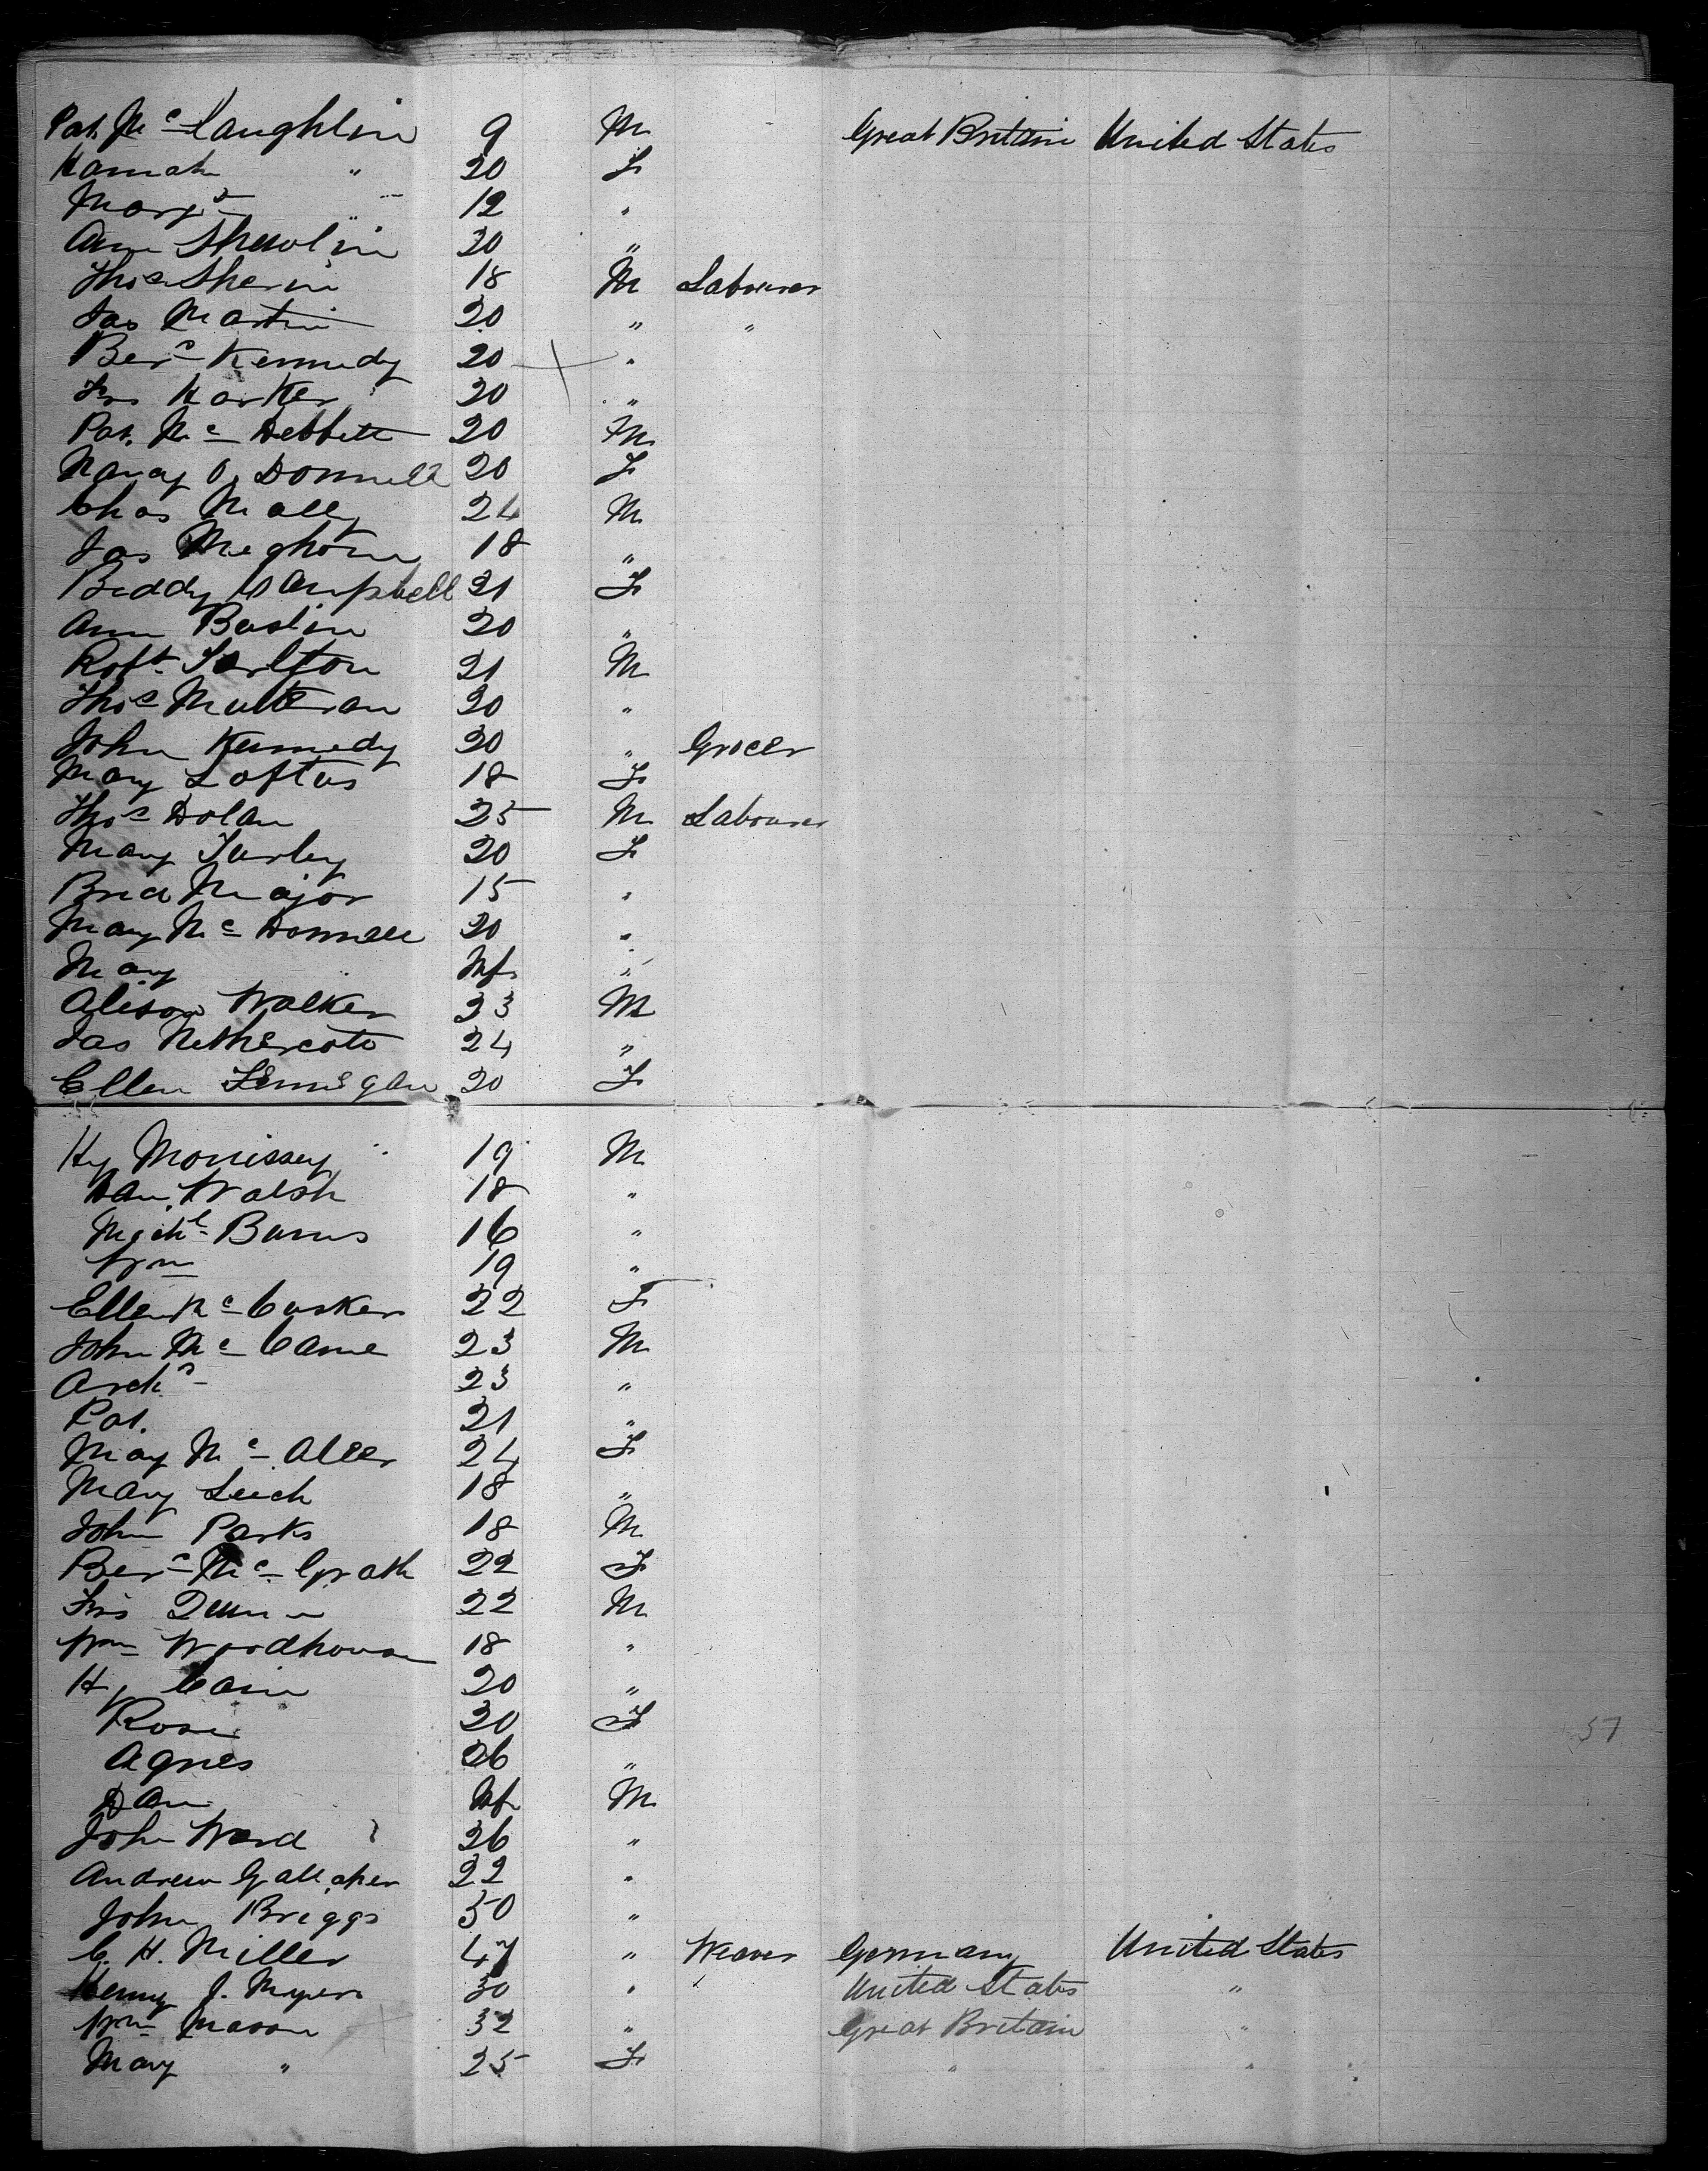 Pat. Mc Laughlin 9 M Great Britain United States
Hannah " 20 F
Margt " 12 "
Ann Shevlin 30 "
Thos Sherin 18 M Labourer
Jas Martin 20 " "
Berd Kennedy 20 "
Frs Harker 20 "
Pat. Mc Debbitt 20 M
Nancy O, Donnell 20 F
Chas Mally 24 M
Jas Meghorn 18 "
Biddy Campbell 21 F
Ann Boslin 20 "
Robt Tarlton 21 M
Thos Mulleran 20 "
John Kennedy 30 " Grocer
Mary Loftus 18 F
Thos Dolan 25 M Labourer
Mary Turley 20 F
Brid Major 15 "
Mary Mc Donnell 20 "
Mary " Inf "
Alison Walker 23 M
Jas Nethercote 24 "
Ellen Finnegan 20 F
Hy Morrissey 19 M
Dan. Walsh 18 "
Michl Burns 16 "
Wm 19 "
Ellen Mc Cusker 22 F
John Mc Cane 23 M
Archd 23 "
Pat. 21 "
May Mc Aleer 24 F
Mary Leech 18 "
John Parks 18 M
Berd Mc Grath 22 F
Frs Quinn 22 M
Wm Woodhouse 18 "
Hy Cain 20 "
Rose 30 F
Agnes 26 "
Dan Inf M
John Ward 26 "
Andrew Gallagher 22 "
John Briggs 50 "
C. H. Miller 47 " Weaver Germany United States
Henry J. Myers 30 " United States "
Wm Mason 32 " Great Britain "
Mary " 25 F " "
57